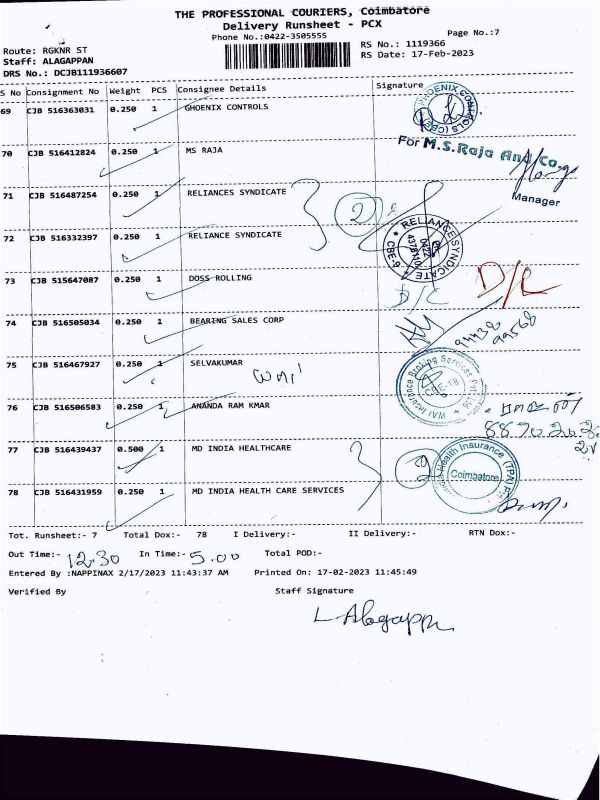 THE PROFESSIONAL COURIERS, Coimbatore
Delivery Runsheet - PCX
Phone No.:0422-3505555
Page No.:7
Route: RGKNR ST
RS No.: 1119366
Staff: ALAGAPPAN
RS Date: 17-Feb-2023
DRS No.: DCJB111936607
S No Consignment No Weight PCS Consignee Details Signature
69 CJB 516363031 0.250 1 GHOENIX CONTROLS
PHOENIX CONTROLS (CBE)
70 CJB 516412824 0.250 1 MS RAJA
For M.S.Raja And Co.,
Manager
71 CJB 516487254 0.250 1 RELIANCES SYNDICATE
2
72 CJB 516332397 0.250 1 RELIANCE SYNDICATE
RELIANCE SYNDICATE CBE-9
73 CJB 515647087 0.250 1 DOSS ROLLING
D/L D/L
74 CJB 516505034 0.250 1 BEARING SALES CORP
75 CJB 516467927 0.250 1 SELVAKUMAR
Insurance Broking Services Pvt Ltd
CBE-18
76 CJB 516506583 0.250 1 ANANDA RAM KMAR
77 CJB 516439437 0.500 1 MD INDIA HEALTHCARE
2
Health Insurance (TPA) P
Coimbatore
78 CJB 516431959 0.250 1 MD INDIA HEALTH CARE SERVICES
Tot. Runsheet:- 7 Total Dox:- 78 I Delivery:- II Delivery:- RTN Dox:-
Out Time:- 12.30 In Time:- 5.00 Total POD:-
Entered By :NAPPINAX 2/17/2023 11:43:37 AM Printed On: 17-02-2023 11:45:49
Verified By Staff Signature
L Alagappn